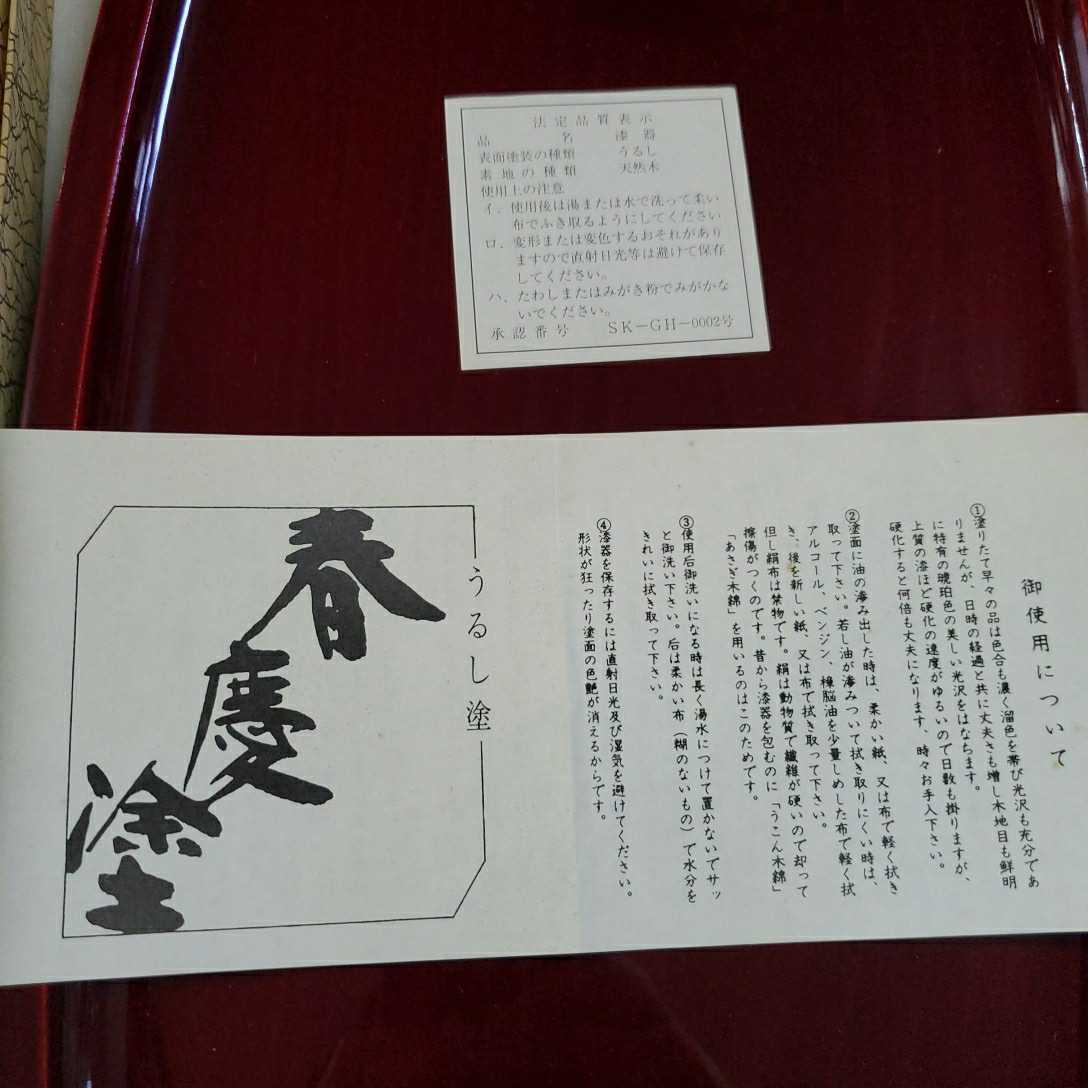 法定品質表示
品名 漆器
表面塗装の種類 うるし
素地の種類 天然木
使用上の注意
イ、使用後は湯または水で洗って柔い
布でふき取るようにしてください
ロ、変形または変色するおそれがあり
ますので直射日光等は避けて保存
してください。
ハ、たわしまたはみがき粉でみがかな
いでください。
承認番号 SK-GH-0002号
御使用について
①塗りたて早々の品は色合も濃く溜色を帯び光沢も充分であ
りませんが、日時の経過と共に丈夫さも増し木地目も鮮明
に特有の琥珀色の美しい光沢をはなちます。
上質の漆ほど硬化の速度がゆるいので日数も掛りますが、
硬化すると何倍も丈夫になります、時々お手入下さい。
②塗面に油の滲み出した時は、柔かい紙、又は布で軽く拭き
取って下さい。若し油が滲みついて拭き取りにくい時は、
アルコール、ベンジン、樟脳油を少量しめした布で軽く拭
き、後を新しい紙、又は布で拭き取って下さい。
但し絹布は禁物です。絹は動物質で繊維が硬いので却って
擦傷がつくのです。昔から漆器を包むのに「うこん木綿」
「あさぎ木綿」を用いるのはこのためです。
③使用后御洗いになる時は長く湯水につけて置かないでサッ
と御洗い下さい。后は柔かい布（糊のないもの）で水分を
きれいに拭き取って下さい。
④漆器を保存するには直射日光及び湿気を避けてください。
形状が狂ったり塗面の色艶が消えるからです。
うるし塗
春慶塗